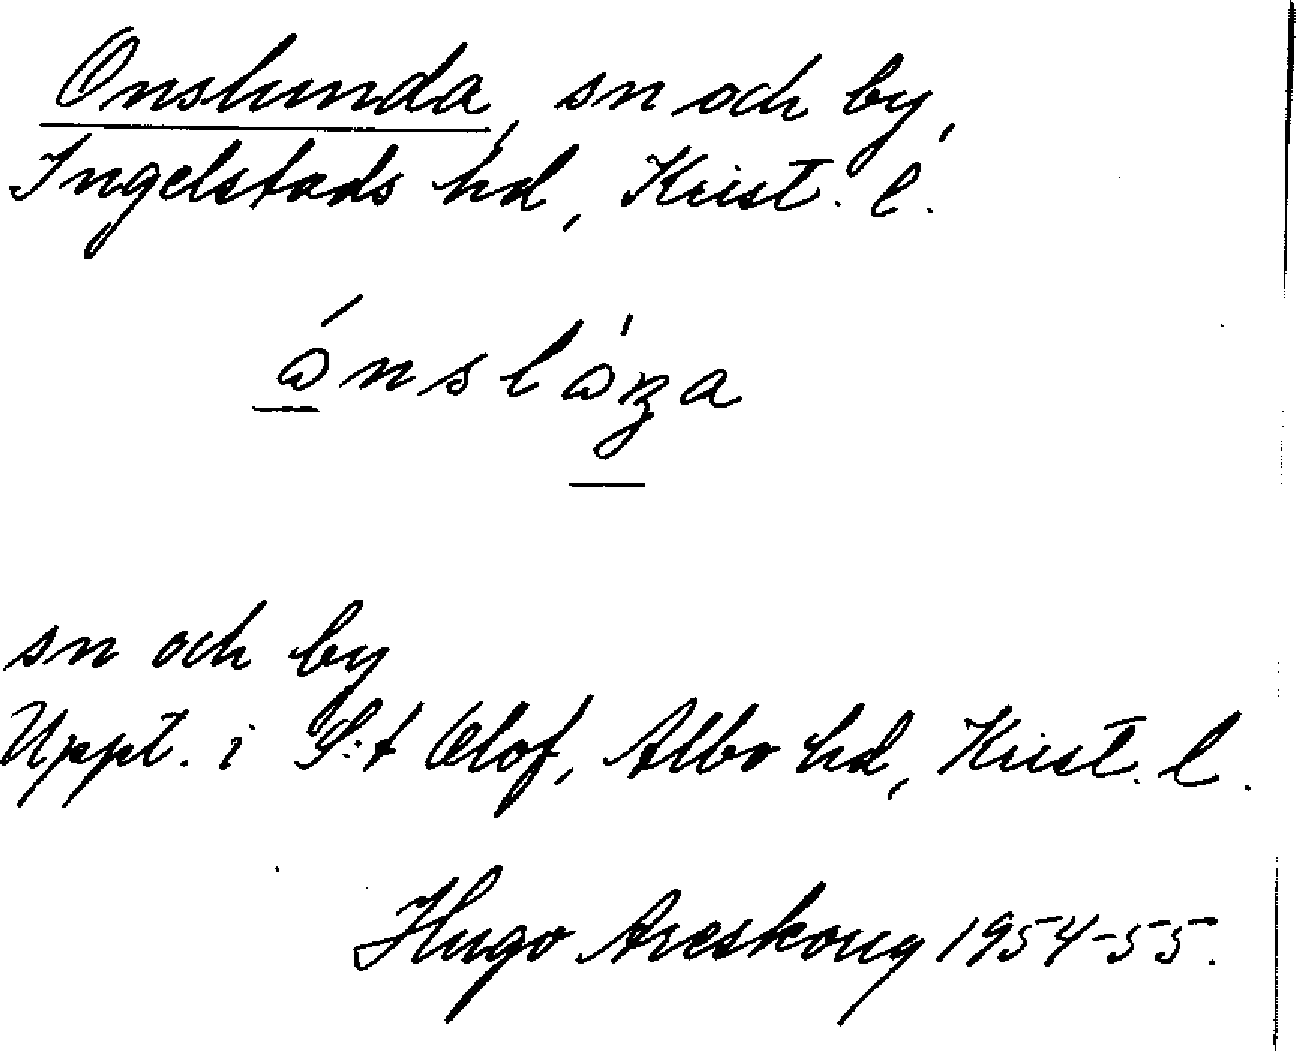 Onslunda, sn och by,
Ingelstads hd, Krist. l.
ónslóza
sn och by
Uppt. i S:t Olof, Albo hd, Krist. l.
Hugo Areskoug 1954-55.